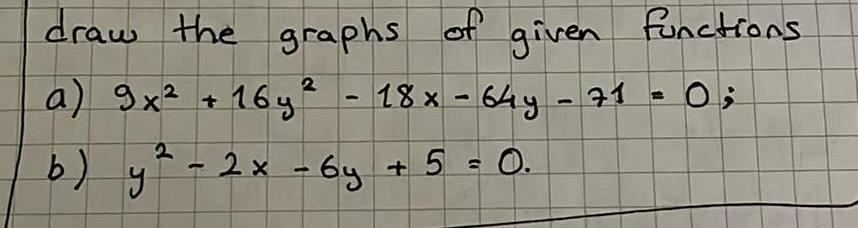 draw the graphs of given functions
a) 9x² + 16y² - 18x - 64y - 71 = 0;
b) y² - 2x - 6y + 5 = 0.